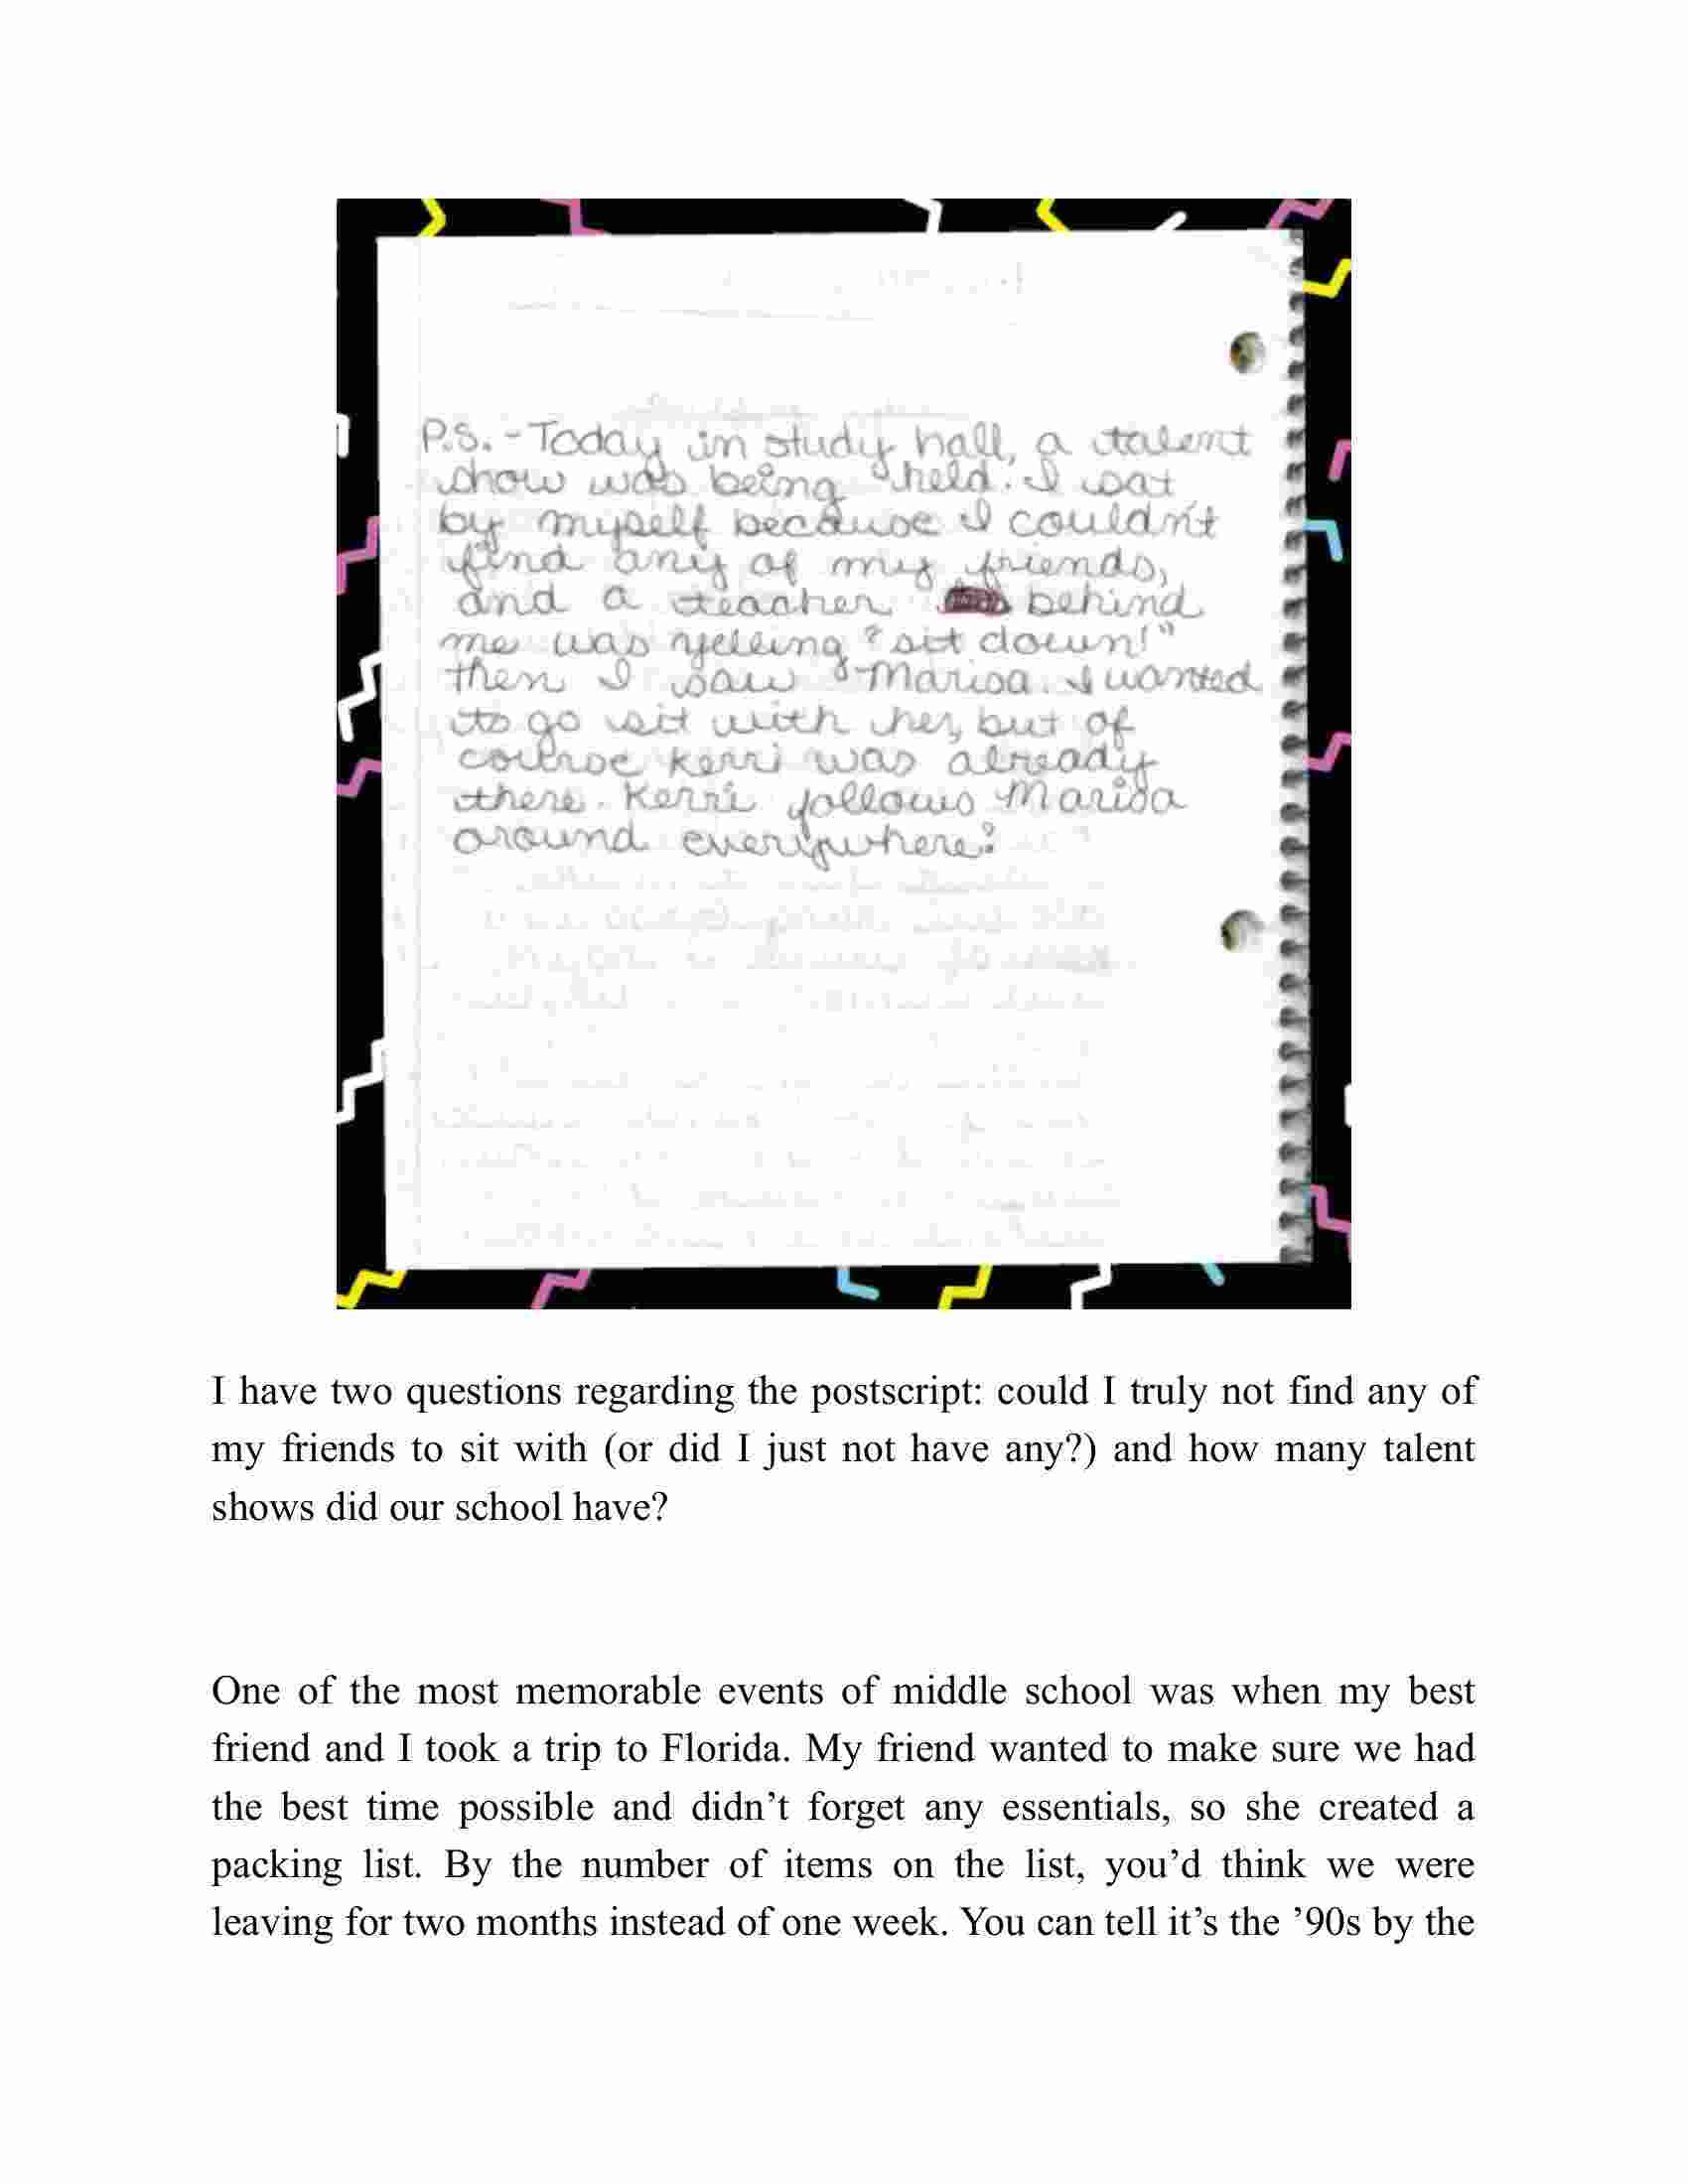 P.S. - Today in study hall, a talent
show was being held. I sat
by myself because I couldn't
find any of my friends,
and a teacher behind
me was yelling "sit down!"
then I saw Marisa. I wanted
to go sit with her, but of
course Kerri was already
there. Kerri follows Marisa
around everywhere!
I have two questions regarding the postscript: could I truly not find any of
my friends to sit with (or did I just not have any?) and how many talent
shows did our school have?
One of the most memorable events of middle school was when my best
friend and I took a trip to Florida. My friend wanted to make sure we had
the best time possible and didn’t forget any essentials, so she created a
packing list. By the number of items on the list, you’d think we were
leaving for two months instead of one week. You can tell it’s the ’90s by the